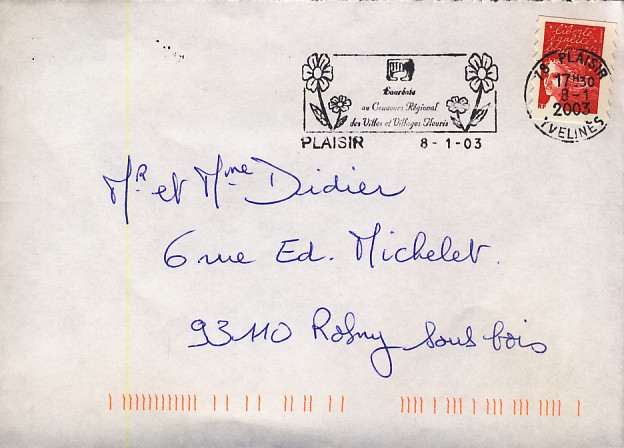 liberté
égalité
78 PLAISIR
17H30
8-1
2003
YVELINES
Lauréate
au Concours Régional
des Villes et Villages Fleuris
PLAISIR 8-1-03
Mr et Mme Didier
6 rue Ed. Michelet.
93110 Rosny sous bois